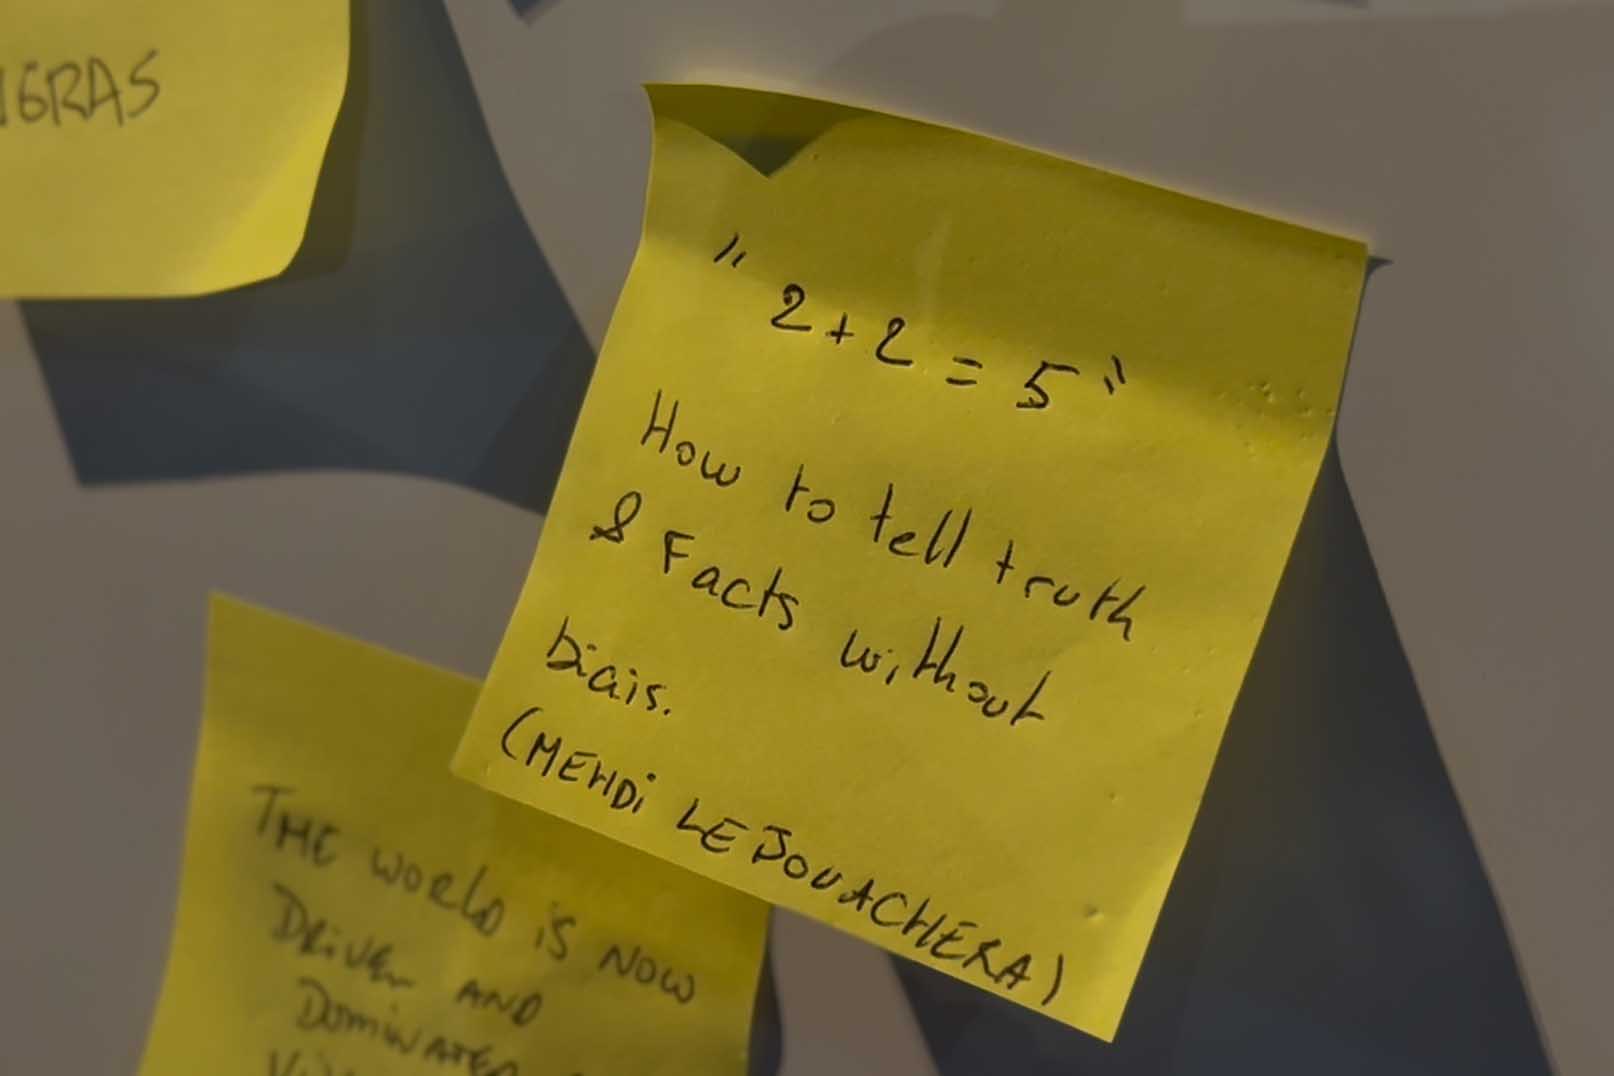 " 2+2 = 5"
How to tell truth
& Facts without
biais.
(MEHDi LEBOUACHERA)
THE WORLD iS NOW
DRiVEN AND